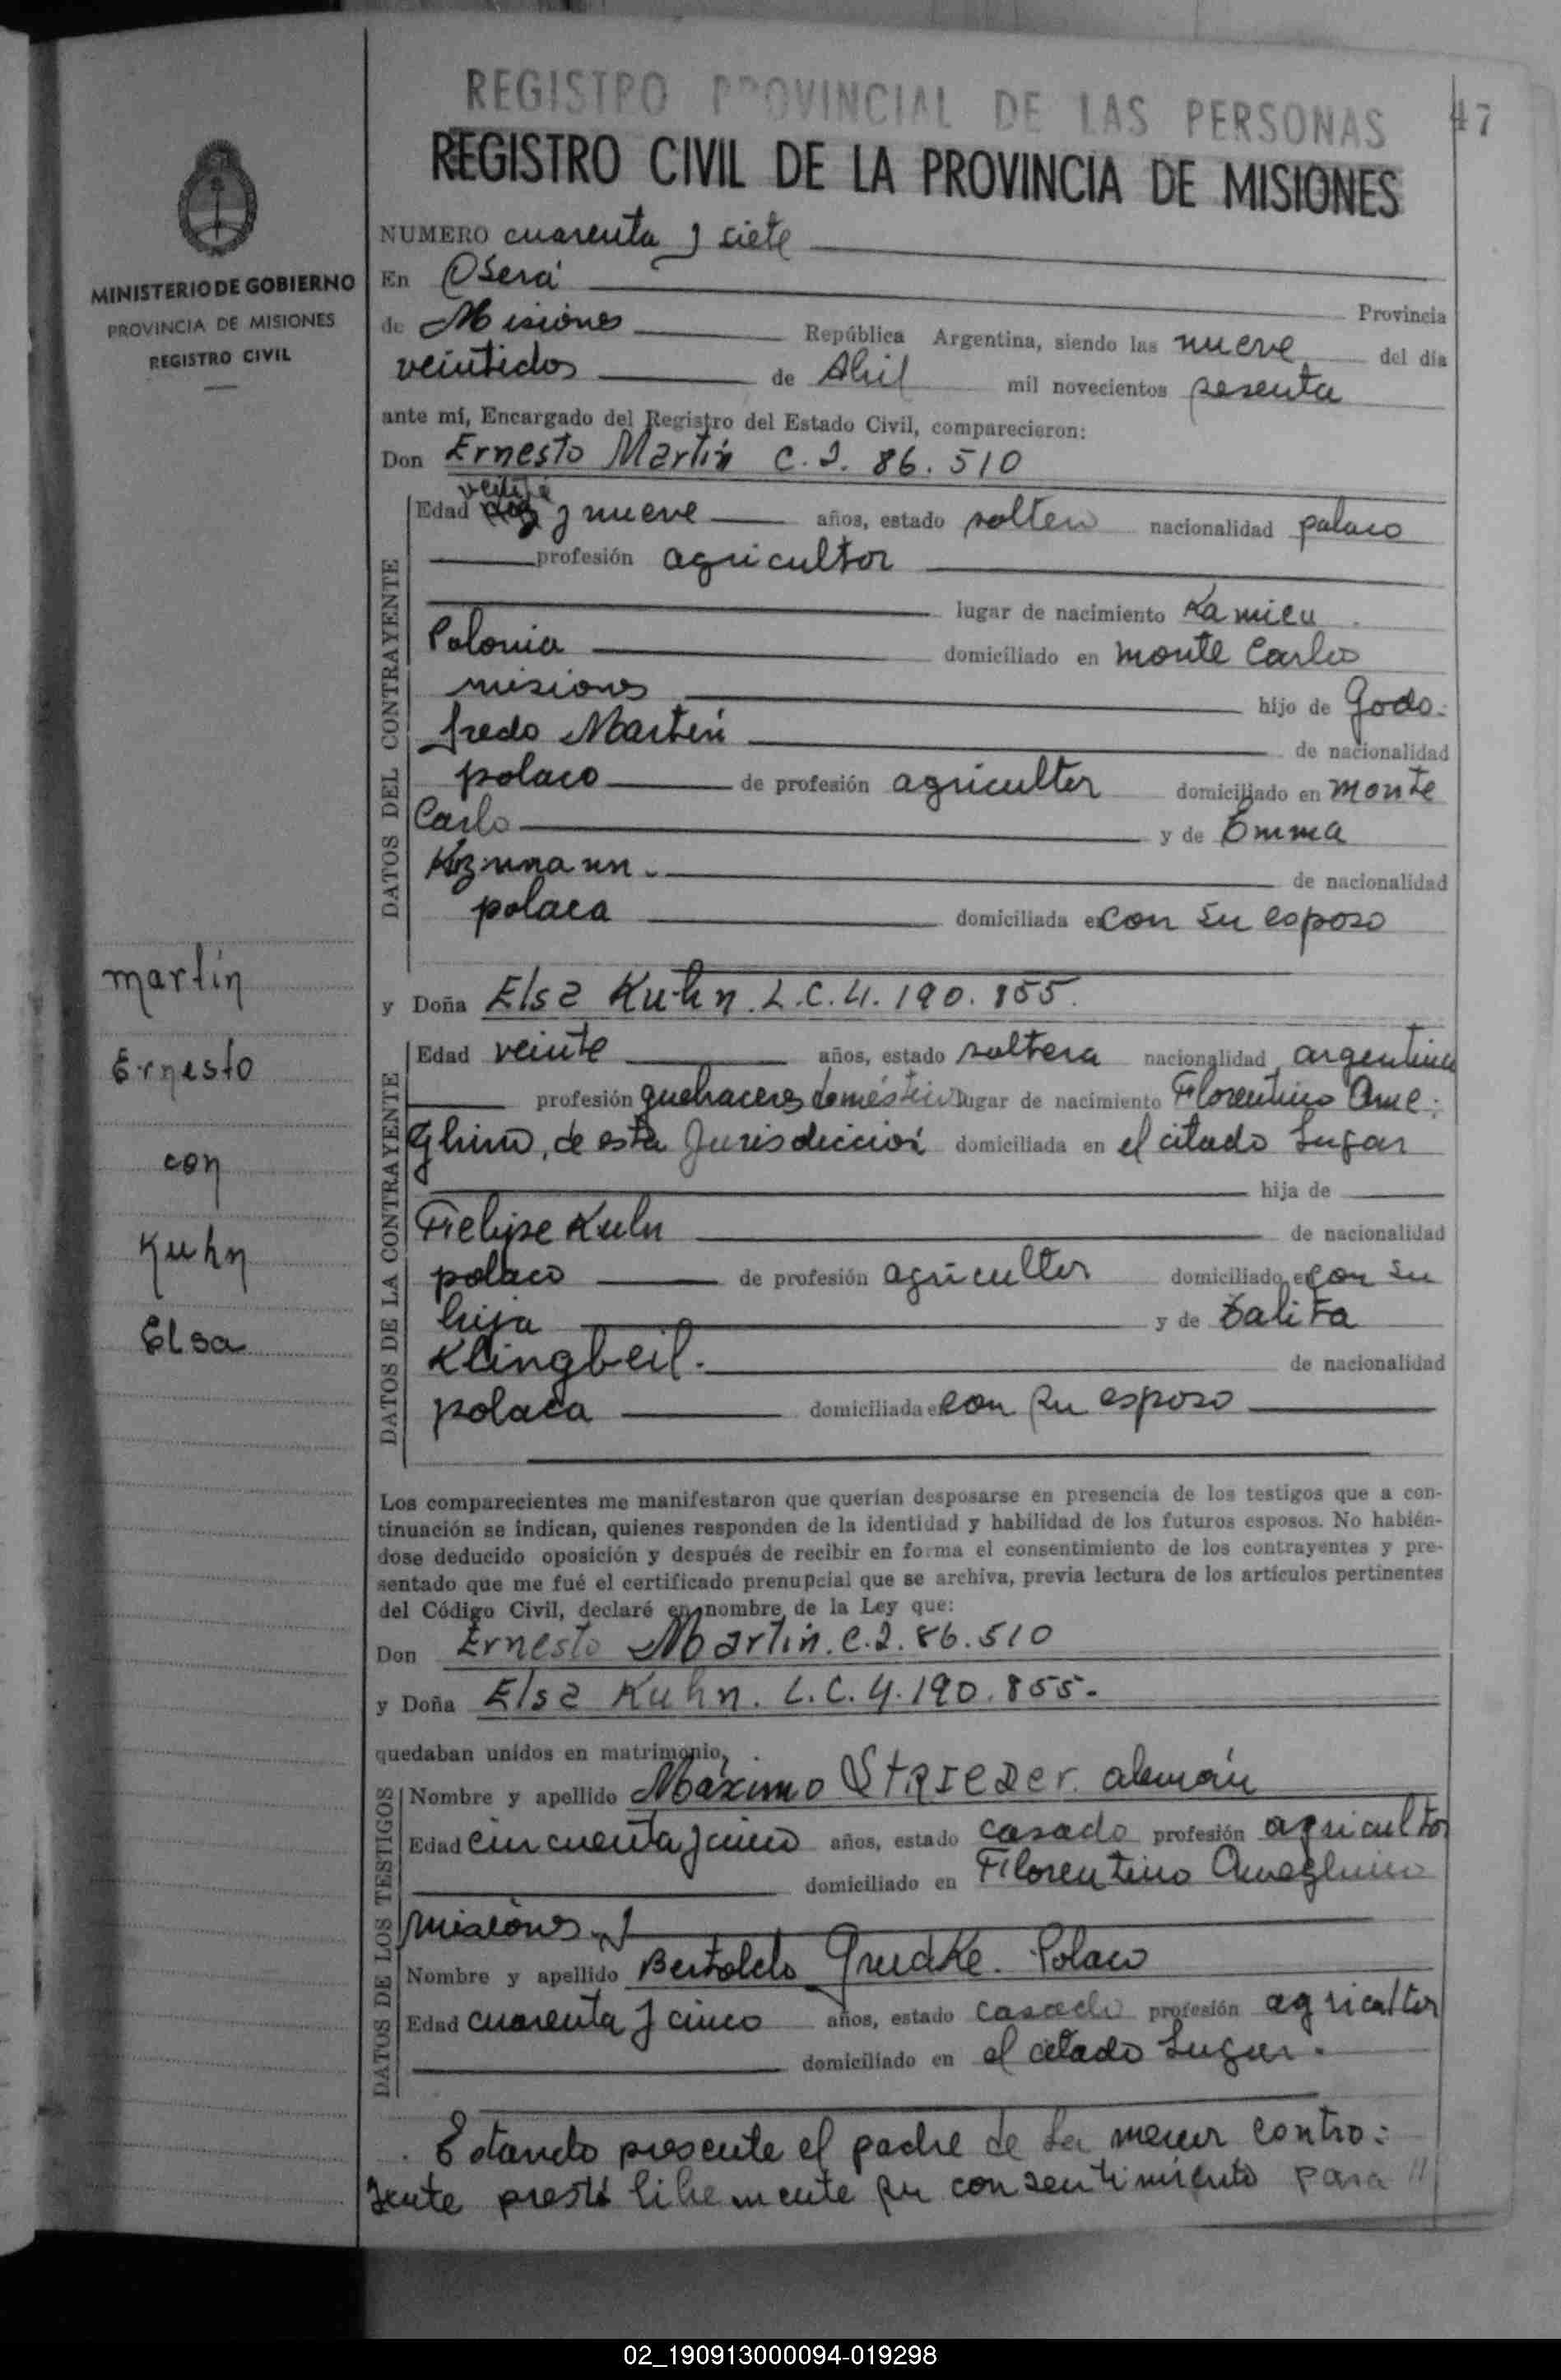 REGISTRO PROVINCIAL DE LAS PERSONAS
47
REGISTRO CIVIL DE LA PROVINCIA DE MISIONES
MINISTERIO DE GOBIERNO
PROVINCIA DE MISIONES
REGISTRO CIVIL
martín
Ernesto
con
Kuhn
Elsa
NUMERO cuarenta y siete
En Oberá Provincia
de Misiones República Argentina, siendo las nueve del día
veintidos de Abril mil novecientos sesenta
ante mí, Encargado del Registro del Estado Civil, comparecieron:
Don Ernesto Martín C.I. 86.510
DATOS DEL CONTRAYENTE
veinte
Edad y nueve años, estado soltero nacionalidad polaco
profesión agricultor
lugar de nacimiento Kamieu
Polonia domiciliado en monte Carlo
misiones hijo de Godo-
fredo Martin de nacionalidad
polaco de profesión agricultor domiciliado en monte
Carlo y de Emma
de nacionalidad
polaca domiciliada en con su esposo
y Doña Elsa Kuhn. L.C. 4.190.855.
DATOS DE LA CONTRAYENTE
Edad veinte años, estado soltera nacionalidad argentina
profesión quehaceres domésticos lugar de nacimiento Florentino Ame-
ghino, de esta Jurisdicción domiciliada en el citado Lugar
hija de
Felipe Kuhn de nacionalidad
polaco de profesión agricultor domiciliado en con su
hija y de
Klingbeil. de nacionalidad
polaca domiciliada en con su esposo
Los comparecientes me manifestaron que querían desposarse en presencia de los testigos que a con-
tinuación se indican, quienes responden de la identidad y habilidad de los futuros esposos. No habién-
dose deducido oposición y después de recibir en forma el consentimiento de los contrayentes y pre-
sentado que me fué el certificado prenupcial que se archiva, previa lectura de los artículos pertinentes
del Código Civil, declaré en nombre de la Ley que:
Don Ernesto Martín. C.I. 86.510
y Doña Elsa Kuhn. L.C. 4.190.855.
quedaban unidos en matrimonio,
DATOS DE LOS TESTIGOS
Nombre y apellido Máximo Strieder. alemán
Edad cincuenta y cinco años, estado casado profesión agricultor
domiciliado en Florentino Ameghino
misiones y
Nombre y apellido Bertoldo Grudke. Polaco
Edad cuarenta y cinco años, estado casado profesión agricultor
domiciliado en el citado Lugar.
Estando presente el padre de la menor contra-
yente prestó libremente su consentimiento para //
02_190913000094-019298